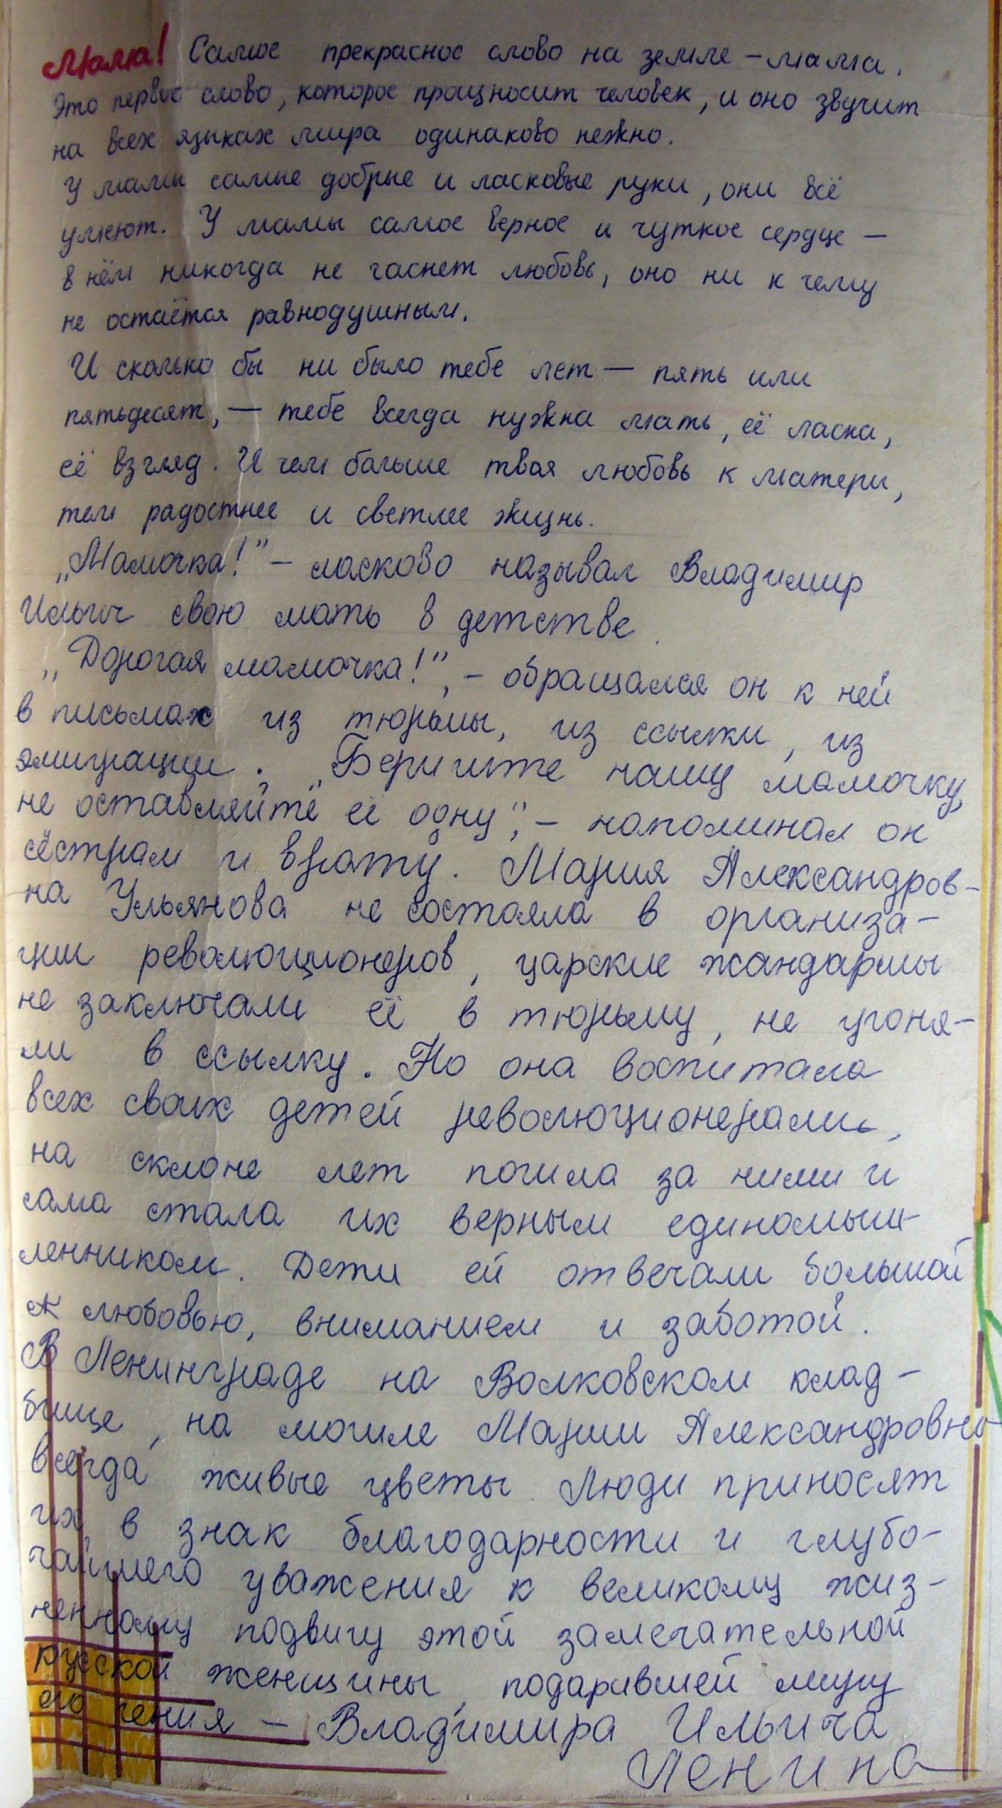 Мама! Самое прекрасное слово на земле – мама.
Это первое слово, которое произносит человек, и оно звучит
на всех языках мира одинаково нежно.
У мамы самые добрые и ласковые руки, они всё
умеют. У мамы самое верное и чуткое сердце –
в нём никогда не гаснет любовь, оно ни к чему
не остаётся равнодушным.
И сколько бы ни было тебе лет – пять или
пятьдесят, – тебе всегда нужна мать, её ласка,
её взгляд. И чем больше твоя любовь к матери,
тем радостнее и светлее жизнь.
„Мамочка!” – ласково называл Владимир
Ильич свою мать в детстве.
„Дорогая мамочка!”, – обращался он к ней
в письмах из тюрьмы, из ссылки, из
эмиграции. „Берегите нашу мамочку,
не оставляйте её одну”, – напоминал он
сёстрам и брату. Мария Александров-
на Ульянова не состояла в организа-
ции революционеров, царские жандармы
не заключали её в тюрьму, не угоня-
ли в ссылку. Но она воспитала
всех своих детей революционерами,
на склоне лет пошла за ними и
сама стала их верным единомыш-
ленником. Дети ей отвечали большой
любовью, вниманием и заботой.
В Ленинграде на Волковском клад-
бище, на могиле Марии Александровны
всегда живые цветы. Люди приносят
их в знак благодарности и глубо-
чайшего уважения к великому жиз-
ненному подвигу этой замечательной
русской женщины, подарившей миру
его гения – Владимира Ильича
Ленина